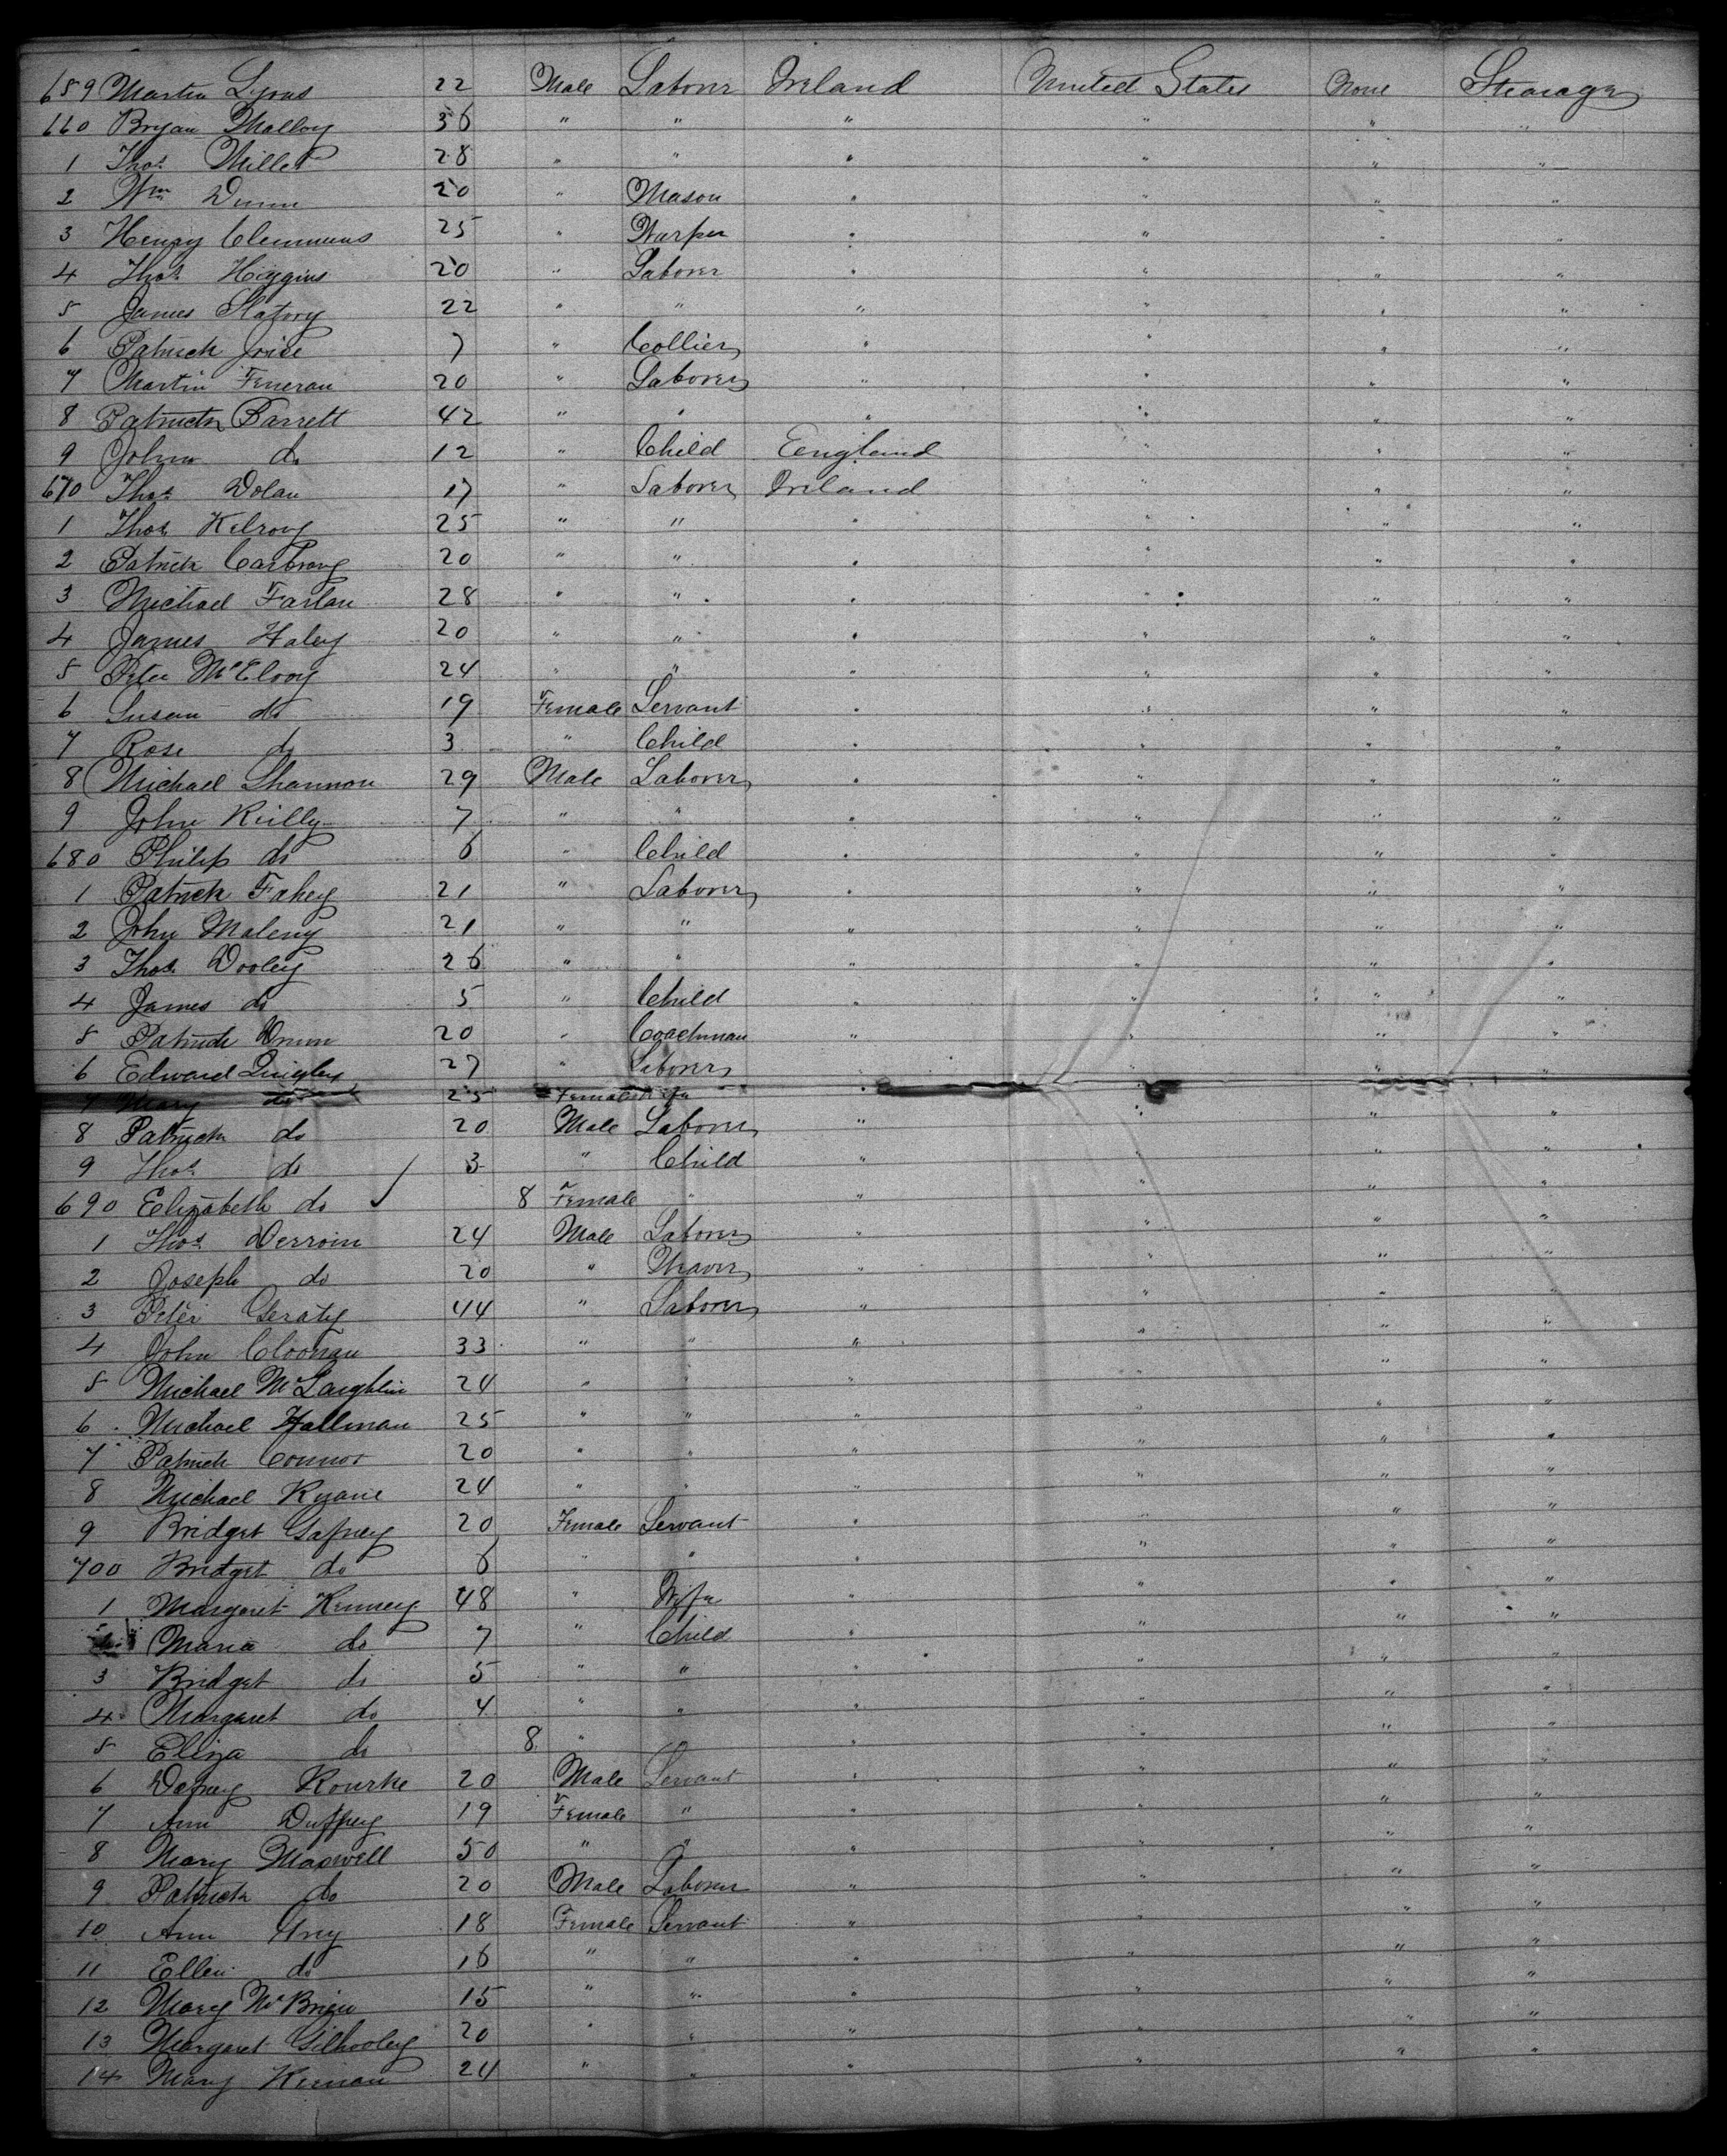 659 Martin Lyons 22 Male Laborer Ireland United States None Steerage
660 Bryan Malloy 36 " " " " " "
1 Thos. Miller 28 " " " " " "
2 Wm Dunn 20 " Mason " " " "
3 Henry Clemmens 25 " Warper " " " "
4 Thos. Higgins 20 " Laborer " " " "
5 James Slatory 22 " " " " " "
6 Patrick Joice 7 " Collier " " " "
7 Martin Feneran 20 " Laborer " " " "
8 Patrick Barrett 42 " " " " " "
9 John do 12 " Child England " " "
670 Thos. Dolan 17 " Laborer Ireland " " "
1 Thos. Kilroy 25 " " " " " "
2 Patrick Carbroy 20 " " " " " "
3 Michael Farlan 28 " " " " " "
4 James Haley 20 " " " " " "
5 Peter McElroy 24 " " " " " "
6 Susan do 19 Female Servant " " " "
7 Rose do 3 " Child " " " "
8 Michael Shannon 29 Male Laborer " " " "
9 John Reilly 7 " " " " " "
680 Philip do 6 " Child " " " "
1 Patrick Fahey 21 " Laborer " " " "
2 John Maleny 21 " " " " " "
3 Thos. Dooley 26 " " " " " "
4 James do 5 " Child " " " "
5 Patrick Drum 20 " Coachman " " " "
6 Edward Quigley 27 " Laborer " " " "
7 Mary do 25 Female Wife "
8 Patrick do 20 Male Laborer " " " "
9 Thos. do 3 " Child " " " "
690 Elizabeth do 8 Female " " " " "
1 Thos. Derroin 24 Male Laborer " " " "
2 Joseph do 20 " Weaver " " " "
3 Peter Geraty 44 " Laborer " " " "
4 John Cloonan 33 " " " " " "
5 Michael McLaughlin 24 " " " " " "
6 Michael Hallman 25 " " " " " "
7 Patrick Connor 20 " " " " " "
8 Michael Ryane 24 " " " " " "
9 Bridget Gafney 20 Female Servant " " " "
700 Bridget do 6 " " " " " "
1 Margaret Kenney 48 " Wife " " " "
Maria do 7 " Child " " " "
3 Bridget do 5 " " " " " "
4 Margaret do 4 " " " " " "
5 Eliza do 8 " " " " "
6 Rourke 20 Male Servant " " " "
7 Ann Duffey 19 Female " " " " "
8 Mary Maxwell 50 " " " " " "
9 Patrick do 20 Male Laborer " " " "
10 Ann 18 Female Servant " " " "
11 Ellen do 16 " " " " " "
12 Mary McBrien 15 " " " " " "
13 Margaret Gilhooley 20 " " " " " "
14 Mary Kiernan 24 " " " " " "